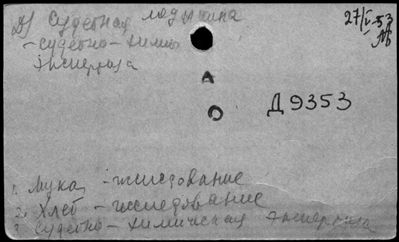 Д) Судебная
27/V-53
- судебно-химич
экспертиза
Д 9353
1. Мука - исследование
2. Хлеб - исследование
3. Судебно-химическая экспертиза